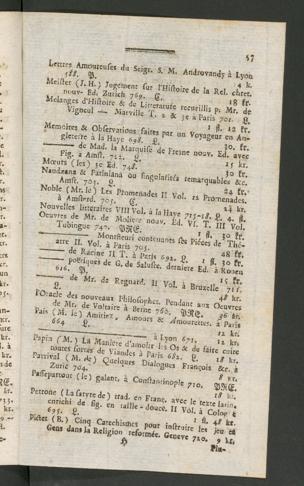 57
Lettres Amoureuses du Seigr. S. M. Androvandy à Lyon
588. P. 4 k.
Meister (J. H.) Jugement sur l'Histoire de la Rel. chret.
nouv. Ed. Zurich 769. C. 18 fr.
Melanges d'Histoire & de Litterature recueillis p. Mr. de
Vigneul — Marville T. 2 & 3e à Paris 701. L.
1 fl. 12 kr.
Memoires & Observations faites par un Voyageur en An-
gleterre à la Haye 698. L. 30 fr.
— de Mad. la Marquise de Fresne nouv. Ed. avec
Fig. à Amst. 722. L. 15 kr.
Mœurs (les) 5e Ed. 748. 30 fr.
Naudæana & Patiniana ou singularités remarquables &c.
Amst. 703. L. 24 fr.
Noble (Mr. le) Les Promenades II Vol. 12 Promenades.
à Amsterd. 705. C. 24 kr.
Nouvelles litteraires VIII Vol. à la Haye 715-18. L. 4. fl.
Oeuvres de Mr. de Moliere nouv. Ed. VI. T. III Vol.
Tubingue 747. PRE. 1 fl. 30 fr.
— Montfleuri contenantes ses Piéces de Thé-
atre II. Vol. à Paris 705. 48 fr.
— de Racine II T. à Paris 692. L. 1 fl. 30 fr.
— poétiques de G. de Saluste. derniere Ed. à Rouen
616. P. 15 fr.
— de Mr. de Regnard. II Vol. à Bruxelle 711.
L. 48 kr.
l'Oracle des nouveaux Philosophes. Pendant aux Oeuvres
de Mr. de Voltaire à Berne 760. PRE. 36 kr.
Pais (M. le) Amitiez, Amours & Amourettes. à Paris
664 L. 12 kr.
— à Lyon 671. 12 kr.
Papin (M.) La Maniére d'amolir les Os & de faire cuire
toutes sortes de Viandes à Paris 682. L. 18 kr.
Patrival (M. de) Quelques Dialogues François &c. à
Zuric 704. 8 kr.
Passepartout (le) galant, à Constantinople 710. PRE.
18 kr.
Petrone (La satyre de) trad. en Franç. avec le texte latin,
enrichi de fig. en taille-douce. II Vol. à Cologne
695. L. 1 fl. 48 kr.
Pictet (B.) Cinq Catechismes pour instruire les jeunes
Gens dans la Religion reformée. Geneve 720. 9 kr.
H
Plu-